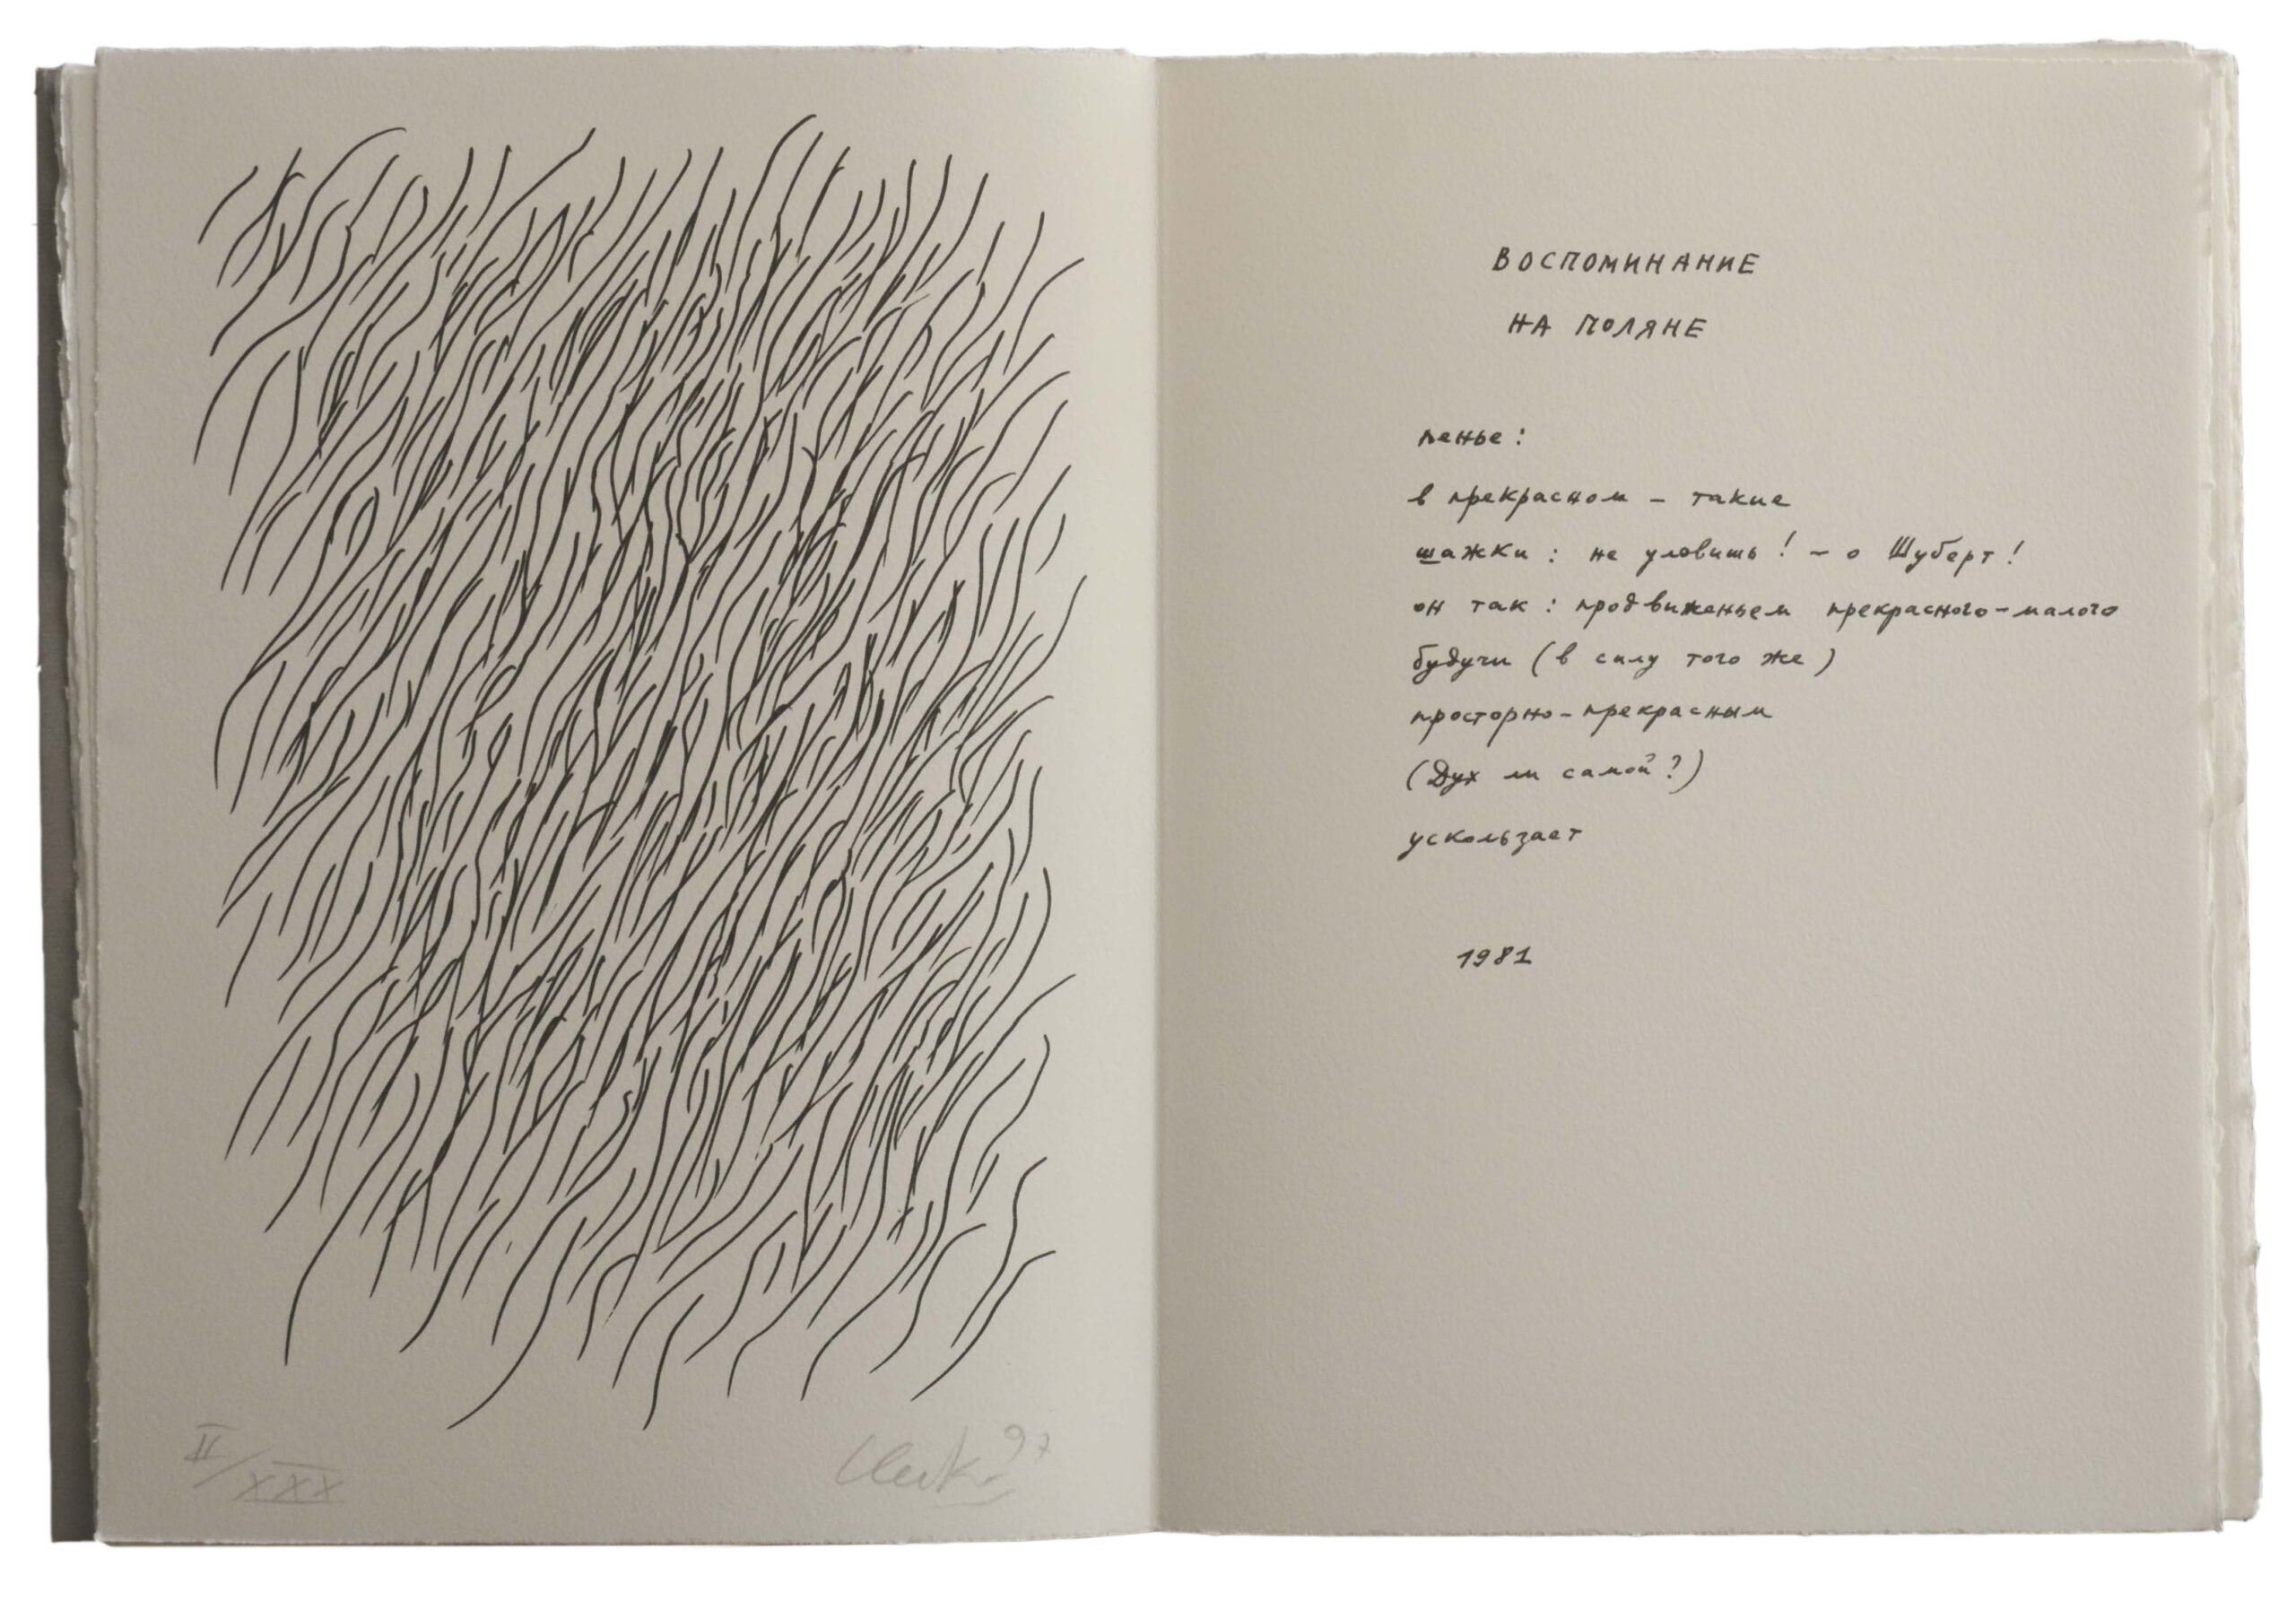 II/XXX
97
ВОСПОМИНАНИЕ
НА ПОЛЯНЕ
пенье:
в прекрасном – такие
шажки: не уловишь! – о Шуберт!
он так: продвиженьем прекрасного-малого
будучи (в силу того же)
просторно-прекрасным
(Дух ли самой?)
ускользает
1981